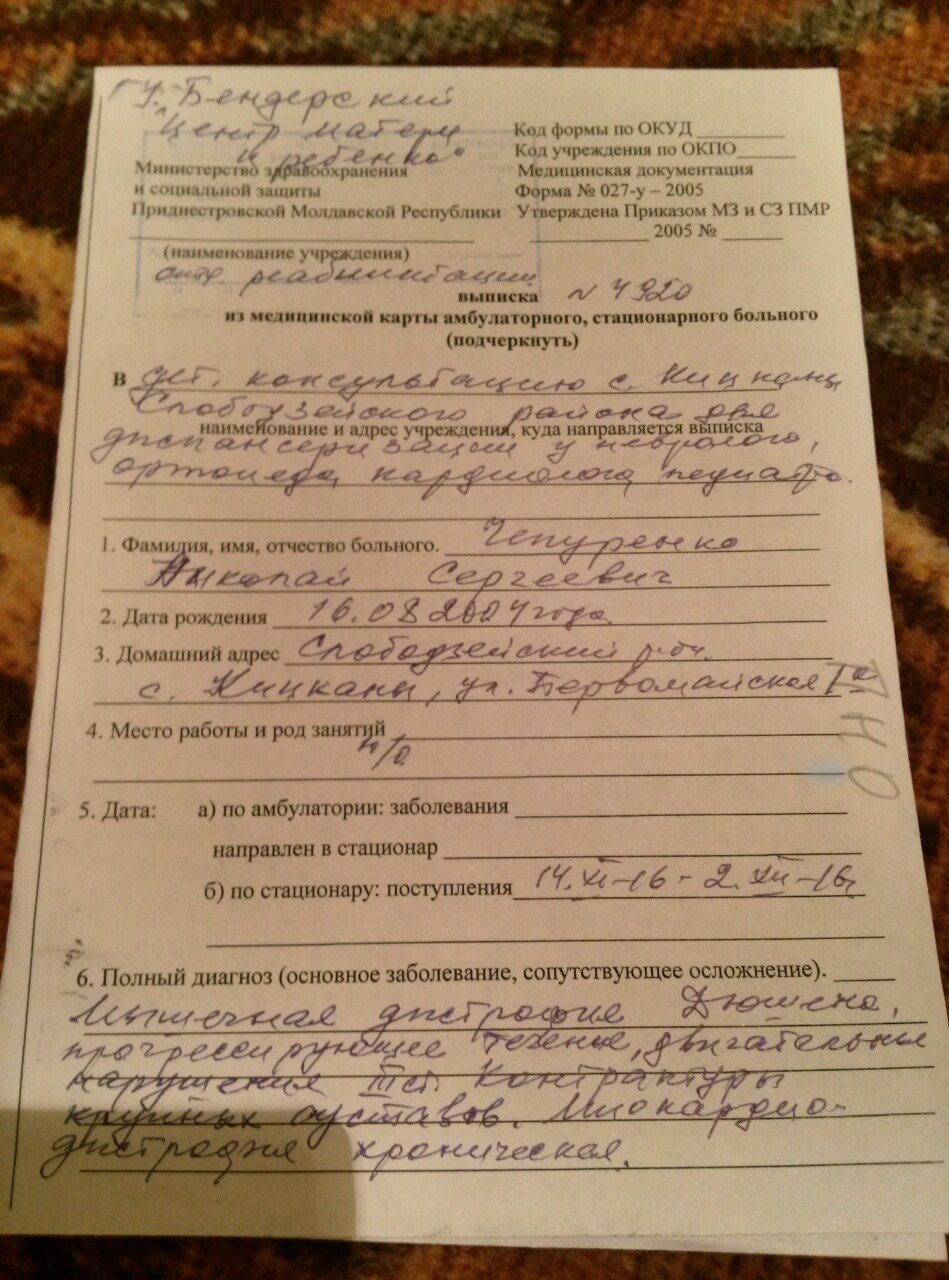 ГУ. Бендерский
"Центр матери
и ребенка"
Код формы по ОКУД
Код учреждения по ОКПО
Министерство здравоохранения
и социальной защиты
Приднестровской Молдавской Республики
Медицинская документация
Форма № 027-у – 2005
Утверждена Приказом МЗ и СЗ ПМР
2005 №
(наименование учреждения)
отд. реабилитации
выписка N 4920
из медицинской карты амбулаторного, стационарного больного
(подчеркнуть)
В дет. консультацию с. Кицканы
Слободзейского района для
наименование и адрес учреждения, куда направляется выписка
диспансеризации у невролога,
ортопеда, кардиолога, педиатра.
1. Фамилия, имя, отчество больного. Чепуренко
Николай Сергеевич
2. Дата рождения 16.08 2004 года.
3. Домашний адрес Слободзейский р-он.
с. Кицканы, ул. Первомайская
4. Место работы и род занятий
н/о
5. Дата: а) по амбулатории: заболевания
направлен в стационар
б) по стационару: поступления 14.XI-16 - 2.XII-16г
6. Полный диагноз (основное заболевание, сопутствующее осложнение).
Мышечная дистрофия Дюшена,
прогрессирующее течение, двигательные
нарушения III ст. Контрактуры
крупных суставов. Миокардио-
дистрофия хроническая.